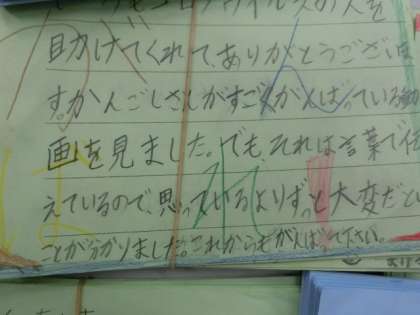 コロナウイルスの人を
助けてくれて、ありがとうございま
す。かんごしさんがすごくがんばっている動
画を見ました。でも、それは言葉で伝
えているので、思っているよりずっと大変だとい
ことが分かりました。これからもがんばって下さい。